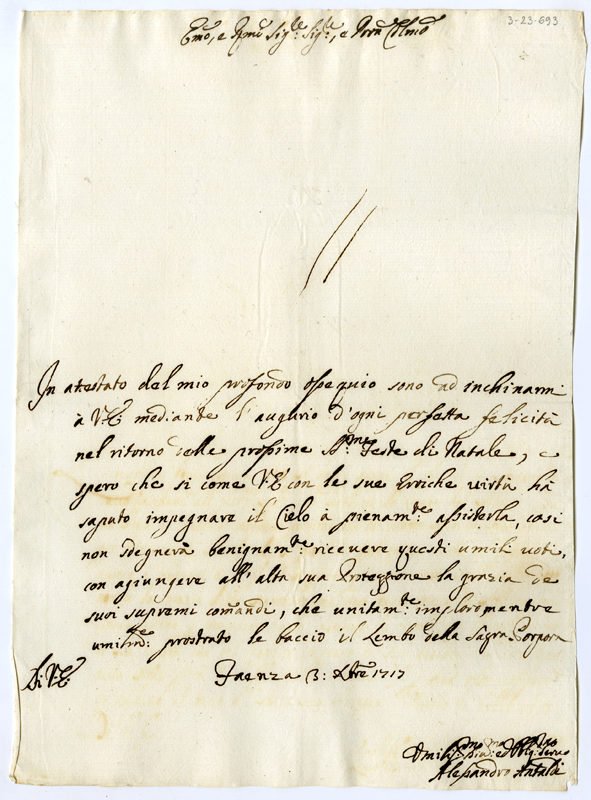 3-23-693
Emo, e Rmo Sigre: Sigre:, e Pron Colmo
In attestato del mio profondo ossequio sono ad inchinarmi
à V.E. mediante l'augurio d'ogni perfetta felicità
nel ritorno delle prossime Sme: Feste di Natale, e
spero che si come V.E. con le sue Erroiche virtù hà
saputo impegnare il Cielo à pienamte: assisterla, cosi
non sdegnerà benignamte: ricevere questi umili voti,
con agiungere all'alta sua Protezzione la grazia de
suoi supremi comandi, che unitamte: imploro mentre
umilmte: prostrato le baccio il Lembo della Sagra Porpora
Di V.E. Faenza 3: Xbre 1717
Umilismo: ed Obligmo: Servo
Alessandro Antaldi